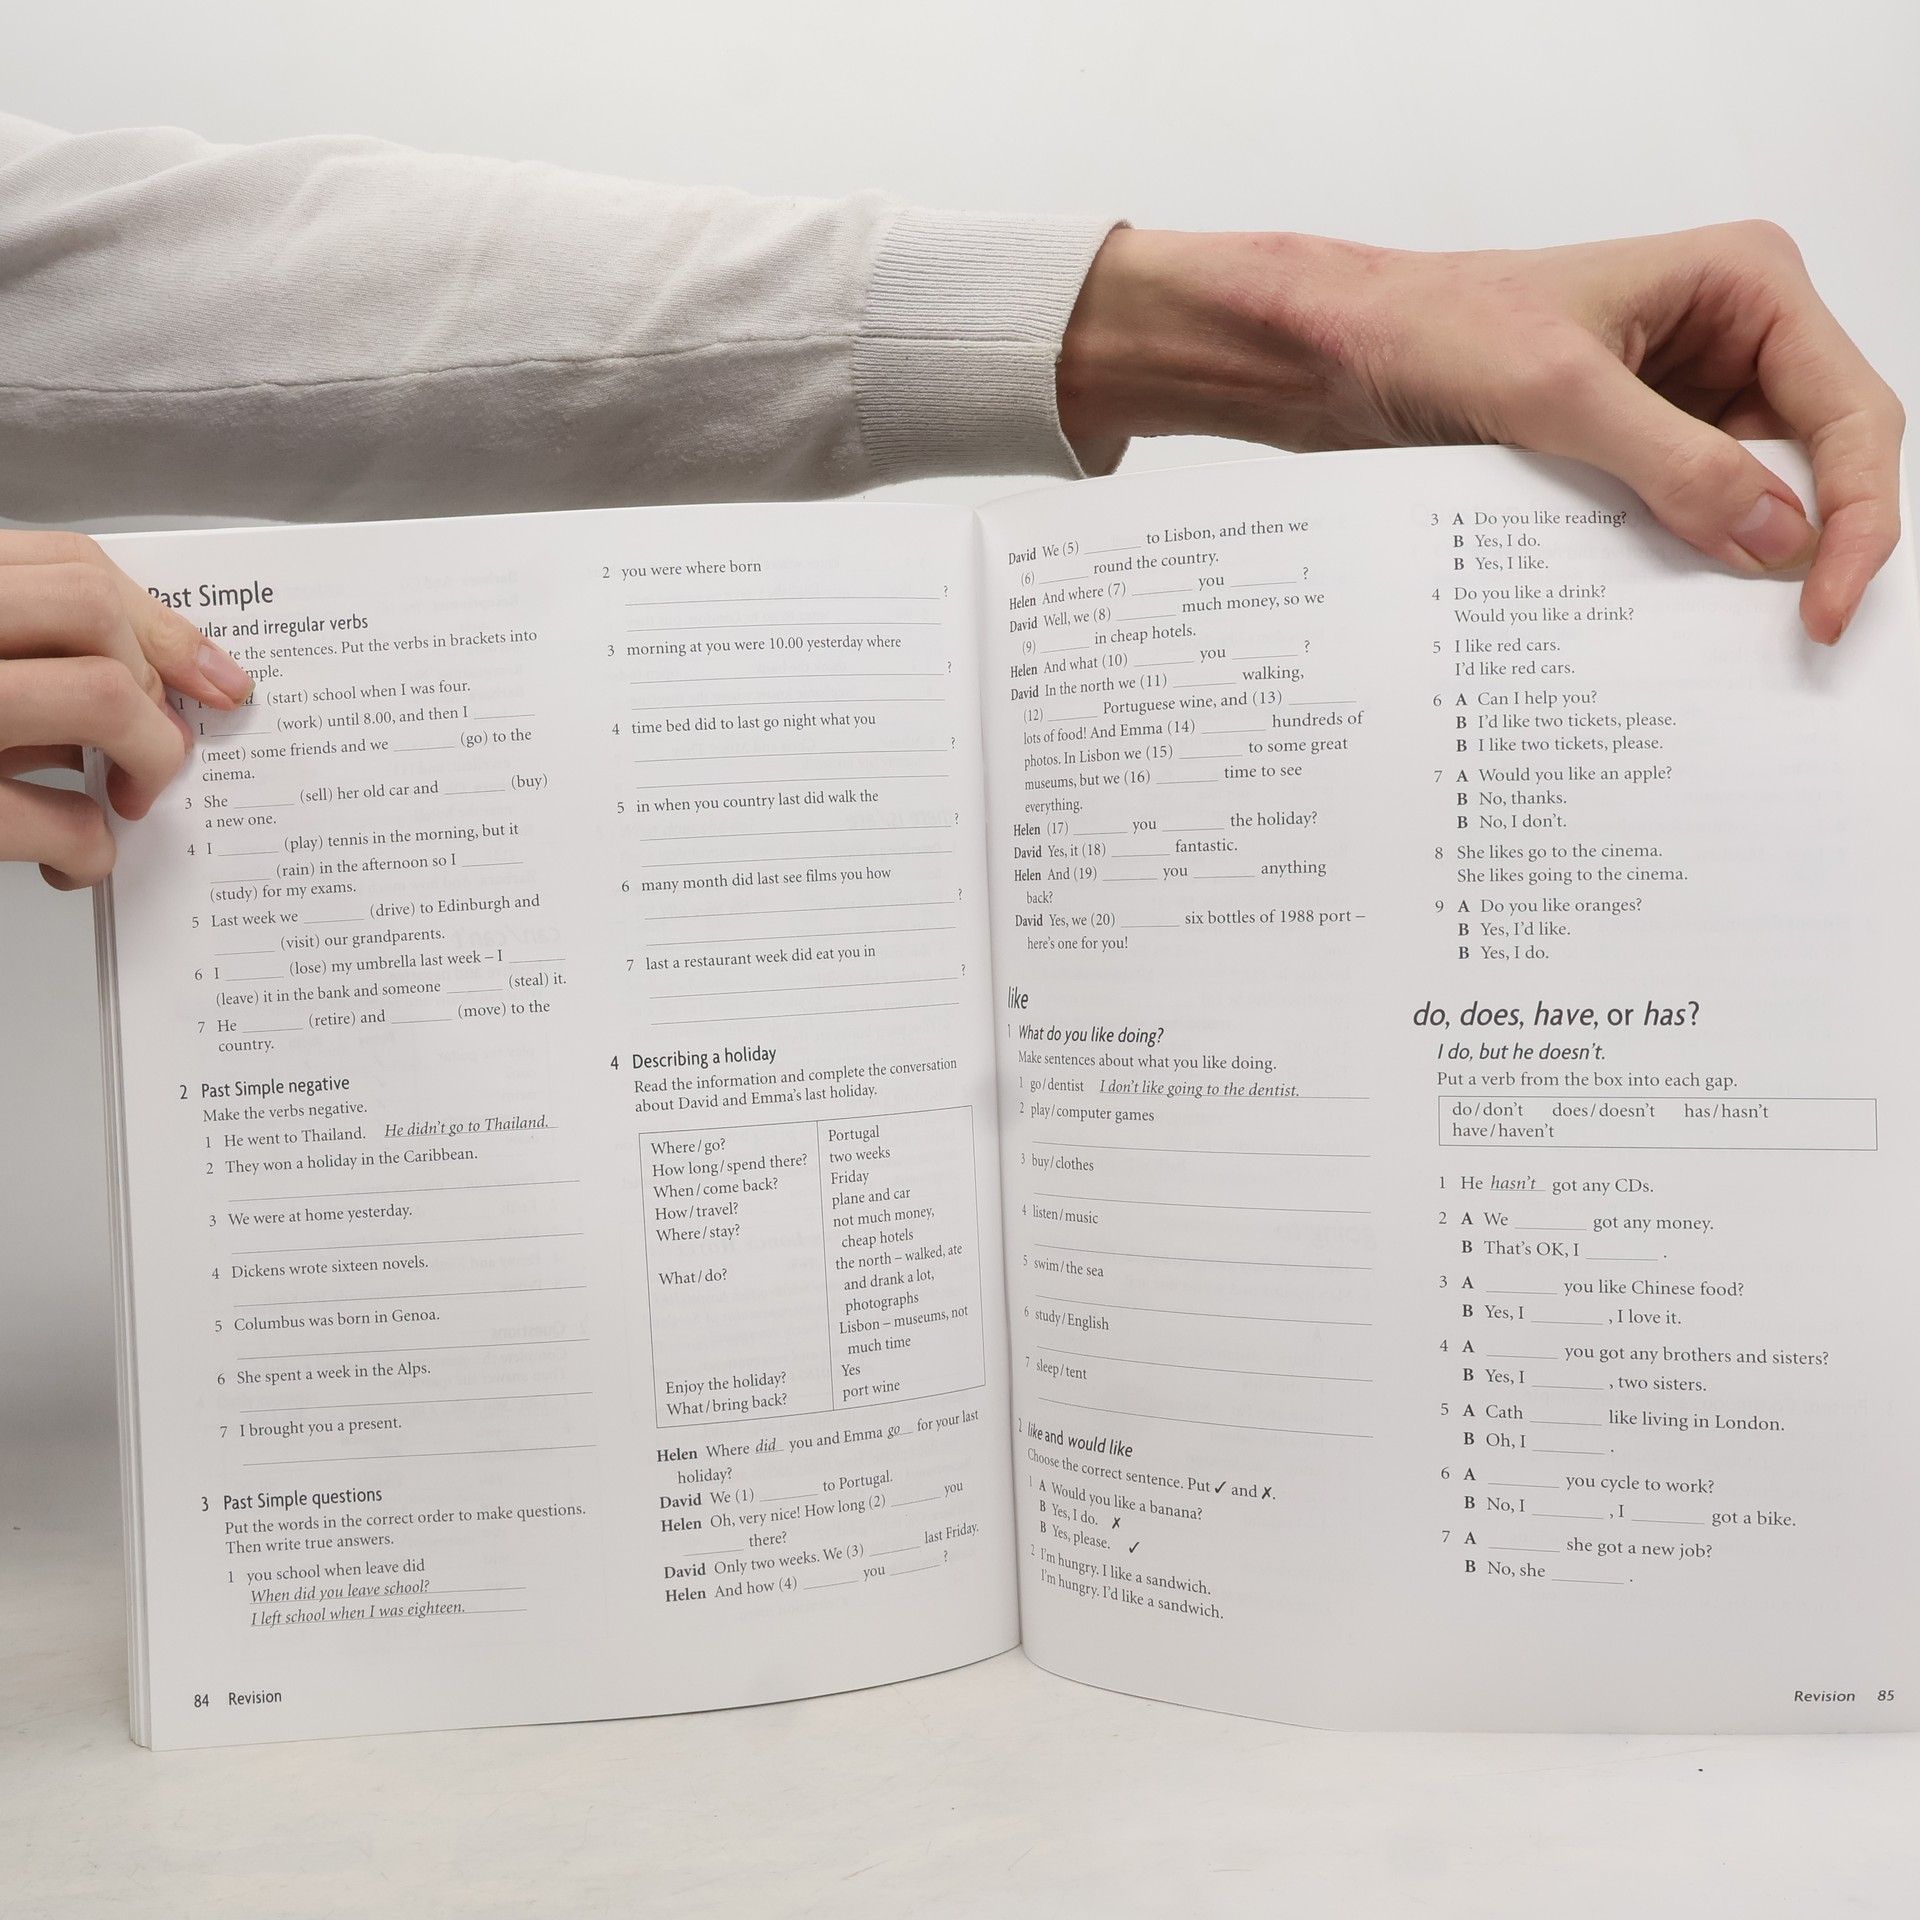 Past Simple
ular and irregular verbs
te the sentences. Put the verbs in brackets into
mple.
1 I d (start) school when I was four.
I ______ (work) until 8.00, and then I ______
(meet) some friends and we ______ (go) to the
cinema.
3 She ______ (sell) her old car and ______ (buy)
a new one.
4 I ______ (play) tennis in the morning, but it
______ (rain) in the afternoon so I ______
(study) for my exams.
5 Last week we ______ (drive) to Edinburgh and
______ (visit) our grandparents.
6 I ______ (lose) my umbrella last week – I ______
(leave) it in the bank and someone ______ (steal) it.
7 He ______ (retire) and ______ (move) to the
country.
2 Past Simple negative
Make the verbs negative.
1 He went to Thailand. He didn't go to Thailand.
2 They won a holiday in the Caribbean.
3 We were at home yesterday.
4 Dickens wrote sixteen novels.
5 Columbus was born in Genoa.
6 She spent a week in the Alps.
7 I brought you a present.
3 Past Simple questions
Put the words in the correct order to make questions.
Then write true answers.
1 you school when leave did
When did you leave school?
I left school when I was eighteen.
2 you were where born
?
3 morning at you were 10.00 yesterday where
?
4 time bed did to last go night what you
?
5 in when you country last did walk the
?
6 many month did last see films you how
?
7 last a restaurant week did eat you in
?
4 Describing a holiday
Read the information and complete the conversation
about David and Emma's last holiday.
Where/go? Portugal
How long/spend there? two weeks
When/come back? Friday
How/travel? plane and car
Where/stay? not much money,
cheap hotels
What/do? the north – walked, ate
and drank a lot,
photographs
Lisbon – museums, not
much time
Enjoy the holiday? Yes
What/bring back? port wine
Helen Where did you and Emma go for your last
holiday?
David We (1) ______ to Portugal.
Helen Oh, very nice! How long (2) ______ you
______ there?
David Only two weeks. We (3) ______ last Friday.
Helen And how (4) ______ you ______ ?
84 Revision
David We (5) ______ to Lisbon, and then we
(6) ______ round the country.
Helen And where (7) ______ you ______ ?
David Well, we (8) ______ much money, so we
(9) ______ in cheap hotels.
Helen And what (10) ______ you ______ ?
David In the north we (11) ______ walking,
(12) ______ Portuguese wine, and (13) ______
lots of food! And Emma (14) ______ hundreds of
photos. In Lisbon we (15) ______ to some great
museums, but we (16) ______ time to see
everything.
Helen (17) ______ you ______ the holiday?
David Yes, it (18) ______ fantastic.
Helen And (19) ______ you ______ anything
back?
David Yes, we (20) ______ six bottles of 1988 port –
here's one for you!
like
1 What do you like doing?
Make sentences about what you like doing.
1 go/dentist I don't like going to the dentist.
2 play/computer games
3 buy/clothes
4 listen/music
5 swim/the sea
6 study/English
7 sleep/tent
2 like and would like
Choose the correct sentence. Put ✓ and ✗.
1 A Would you like a banana?
B Yes, I do. ✗
B Yes, please. ✓
2 I'm hungry. I like a sandwich.
I'm hungry. I'd like a sandwich.
3 A Do you like reading?
B Yes, I do.
B Yes, I like.
4 Do you like a drink?
Would you like a drink?
5 I like red cars.
I'd like red cars.
6 A Can I help you?
B I'd like two tickets, please.
B I like two tickets, please.
7 A Would you like an apple?
B No, thanks.
B No, I don't.
8 She likes go to the cinema.
She likes going to the cinema.
9 A Do you like oranges?
B Yes, I'd like.
B Yes, I do.
do, does, have, or has?
I do, but he doesn't.
Put a verb from the box into each gap.
do/don't does/doesn't has/hasn't
have/haven't
1 He hasn't got any CDs.
2 A We ______ got any money.
B That's OK, I ______ .
3 A ______ you like Chinese food?
B Yes, I ______ , I love it.
4 A ______ you got any brothers and sisters?
B Yes, I ______ , two sisters.
5 A Cath ______ like living in London.
B Oh, I ______ .
6 A ______ you cycle to work?
B No, I ______ , I ______ got a bike.
7 A ______ she got a new job?
B No, she ______ .
Revision 85